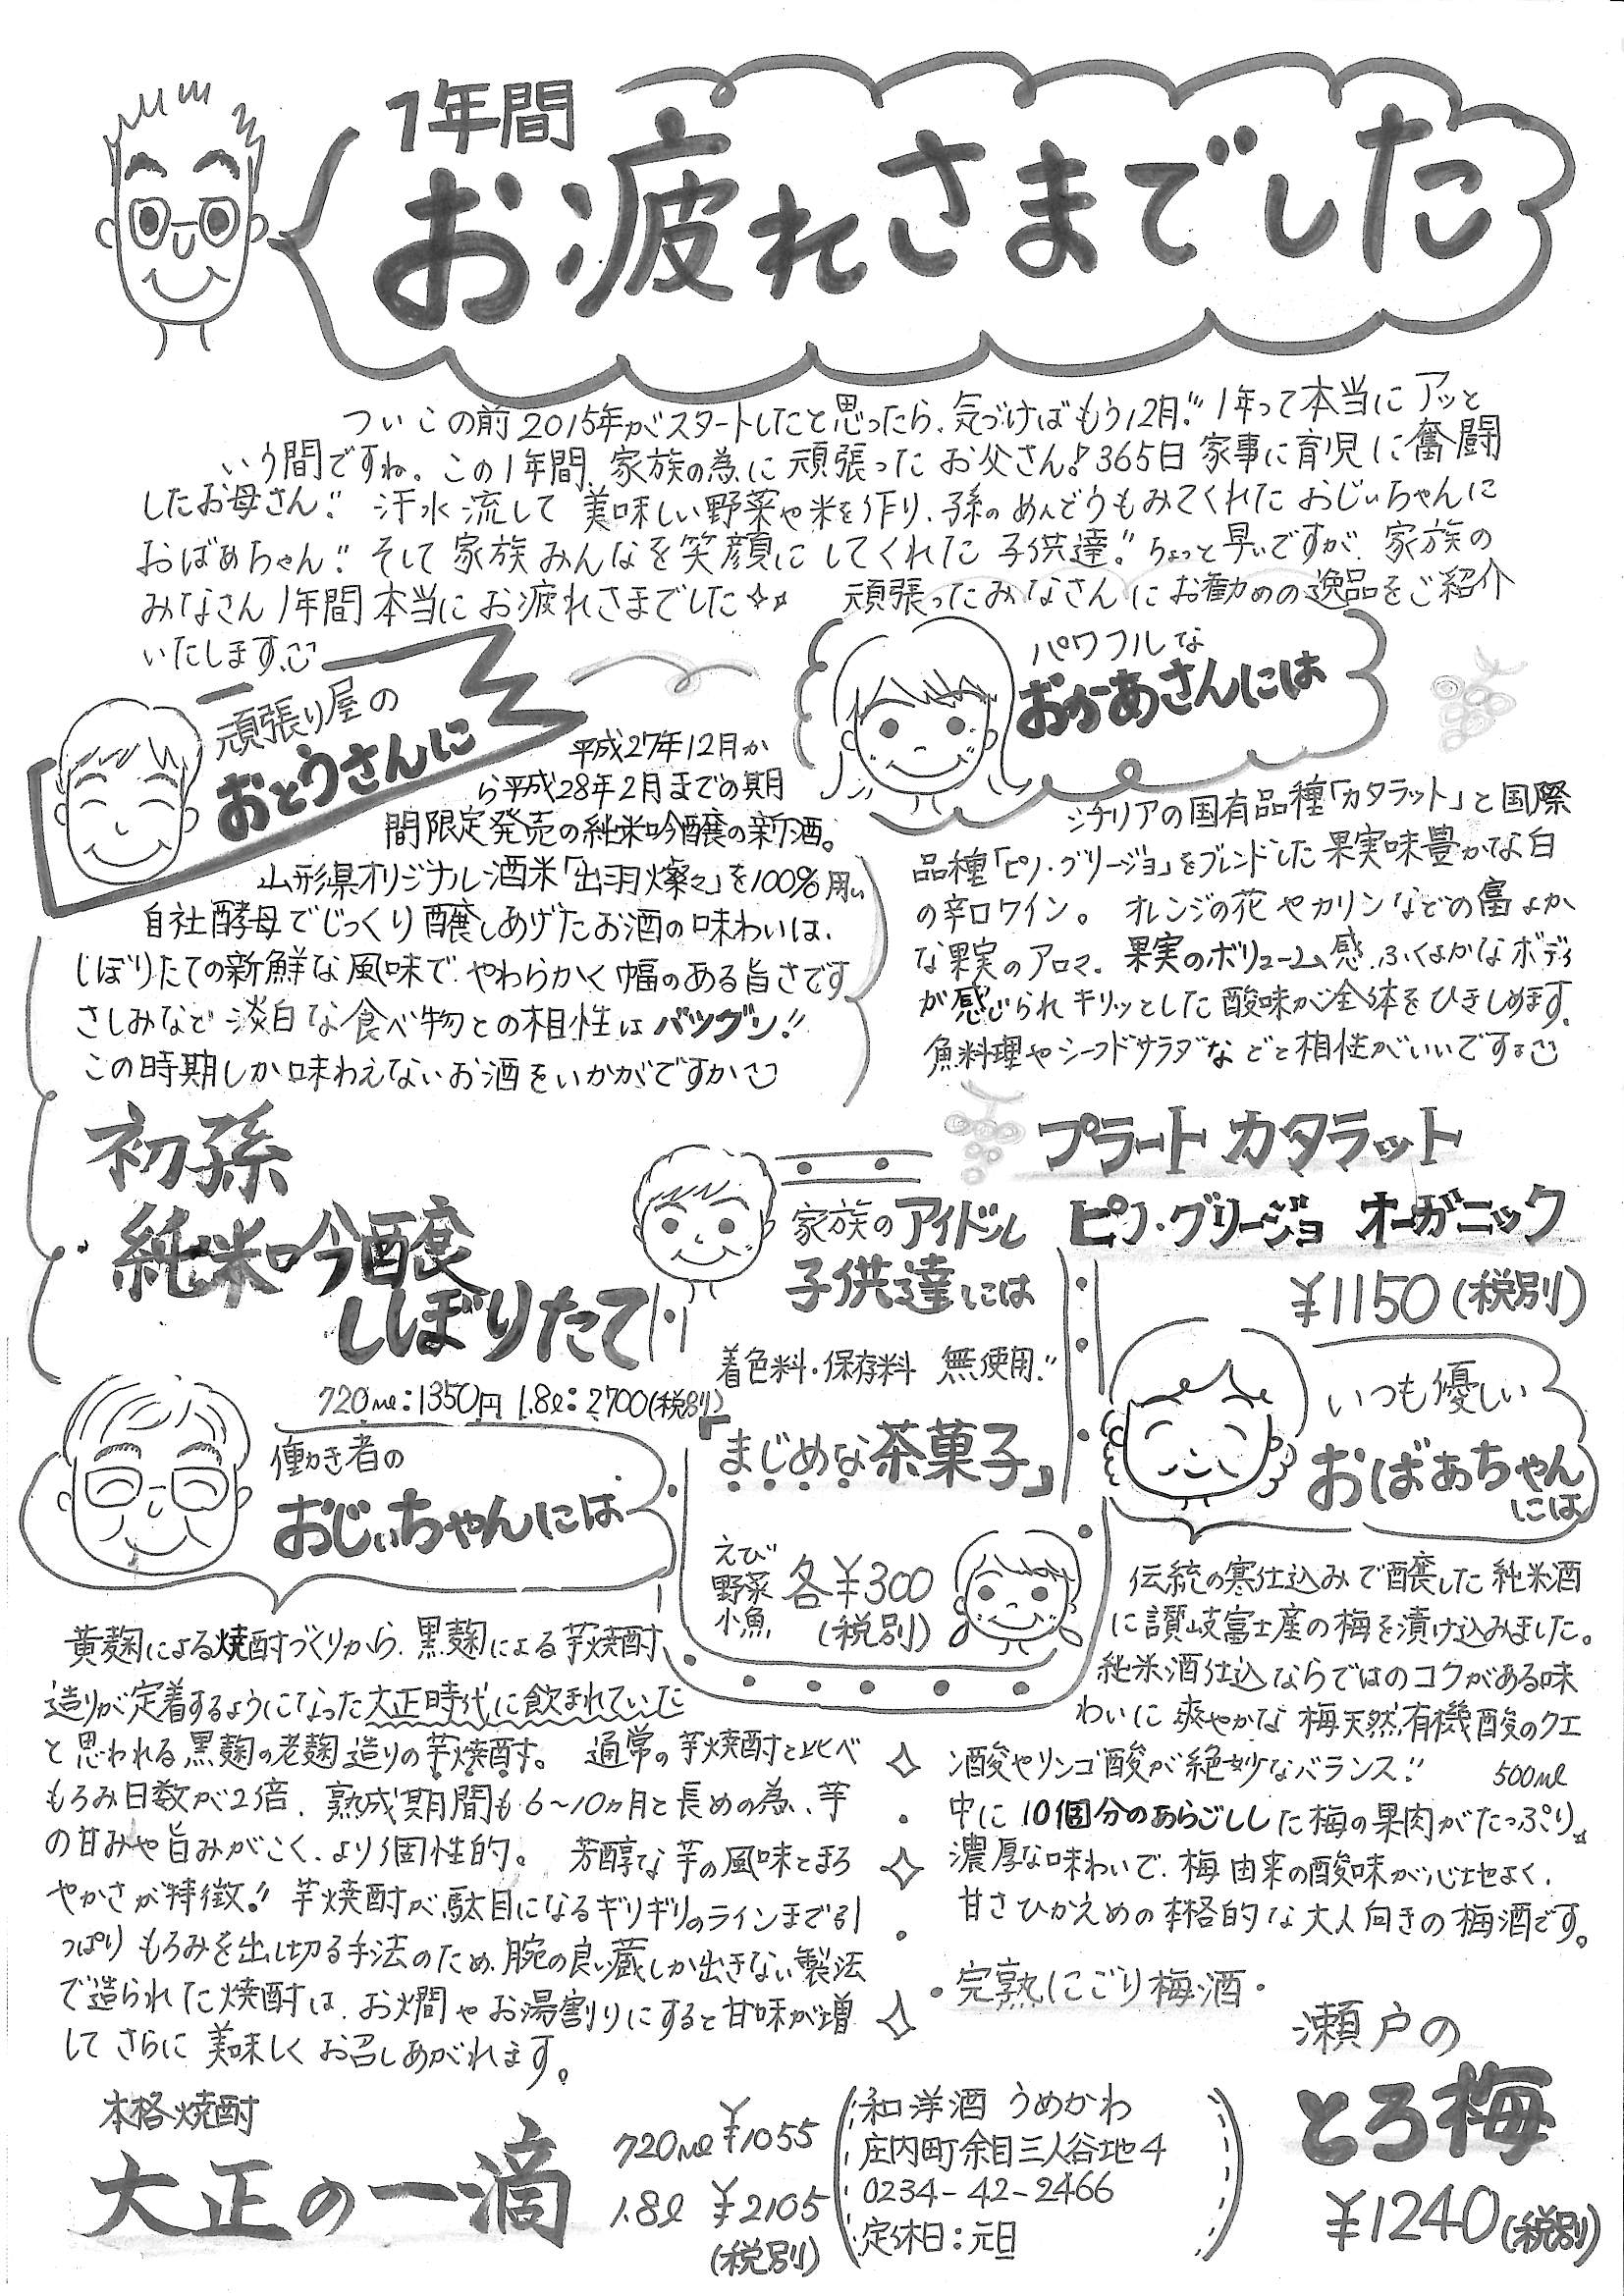 1年間
お疲れさまでした
ついこの前2015年がスタートしたと思ったら、気づけばもう12月!!1年って本当にアッと
いう間ですね。この1年間、家族の為に頑張ったお父さん!365日家事に育児に奮闘
したお母さん!!汗水流して美味しい野菜や米を作り、孫のめんどうもみてくれたおじぃちゃんに
おばぁちゃん!!そして家族みんなを笑顔にしてくれた子供達!!ちょっと早いですが、家族の
みなさん1年間本当にお疲れさまでした 頑張ったみなさんにお勧めの逸品をご紹介
いたします。
頑張り屋の
おとうさんに
平成27年12月か
ら平成28年2月までの期
間限定発売の純米吟醸の新酒。
山形県オリジナル酒米「出羽燦々」を100%用い
自社酵母でじっくり醸しあげたお酒の味わいは、
しぼりたての新鮮な風味で、やわらかく幅のある旨さです
さしみなど淡白な食べ物との相性はバツグン!!
この時期しか味わえないお酒をいかがですか
初孫
純米吟醸
しぼりたて
720ml:1350円 1.8l:2700(税別)
パワフルな
おかあさんには
シチリアの国有品種「カタラット」と国際
品種「ピノ・グリージョ」をブレンドした果実味豊かな白
の辛口ワイン。オレンジの花やカリンなどの富よか
な果実のアロマ。果実のボリューム感、ふくよかなボディ
が感じられキリッとした酸味が全体をひきしめます。
魚料理やシーフードサラダなどと相性がいいです
プラート カタラット
ピノ・グリージョ オーガニック
¥1150(税別)
家族のアイドル
子供達には
着色料・保存料 無使用!!
「まじめな茶菓子」
えび
野菜
小魚
各¥300
(税別)
働き者の
おじぃちゃんには
黄麹による焼酎づくりから、黒麹による芋焼酎
造りが定着するようになった大正時代に飲まれていた
と思われる黒麹の老麹造りの芋焼酎。通常の芋焼酎と比べ
もろみ日数が2倍、熟成期間も6~10ヵ月と長めの為、芋
の甘みや旨みがこく、より個性的。芳醇な芋の風味とまろ
やかさが特徴!!芋焼酎が駄目になるギリギリのラインまで引
っぱりもろみを出し切る手法のため、腕の良い蔵しか出きない製法
で造られた焼酎は、お燗やお湯割りにすると甘味が増
してさらに美味しくお召しあがれます。
本格焼酎
大正の一滴
720ml ¥1055
1.8l ¥2105
(税別)
いつも優しい
おばぁちゃん
には
伝統の寒仕込みで醸した純米酒
に讃岐富士産の梅を漬け込みました。
純米酒仕込ならではのコクがある味
わいに爽やかな梅天然有機酸のクエ
ン酸やリンゴ酸が絶妙なバランス!! 500ml
中に10個分のあらごしした梅の果肉がたっぷり。
濃厚な味わいで、梅由来の酸味が心地よく、
甘さひかえめの本格的な大人向きの梅酒です。
・完熟にごり梅酒・
瀬戸の
とろ梅
¥1240(税別)
和洋酒 うめかわ
庄内町余目三人谷地4
0234-42-2466
定休日:元旦